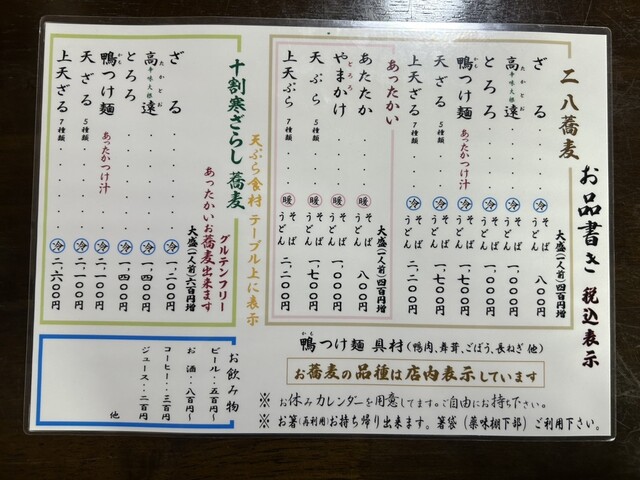 お品書き 税込表示
二八蕎麦
大盛(一人前)四百円増
ざる ・・・・ 冷 そば うどん 八〇〇円
高遠 たかとお 辛味大根 ・・・ 冷 そば うどん 一、〇〇〇円
とろろ ・・・ 冷 そば うどん 一、〇〇〇円
鴨つけ麺 かも あったかつけ汁 冷 そば うどん 一、七〇〇円
天ざる 5種類 ・・ 冷 そば うどん 一、七〇〇円
上天ざる 7種類 ・・ 冷 そば うどん 二、二〇〇円
あったかい
大盛(一人前)四百円増
あたたか ・・・ 暖 そば うどん 八〇〇円
やまかけ とろろ ・・・ 暖 そば うどん 一、〇〇〇円
天ぷら 5種類 ・・ 暖 そば うどん 一、七〇〇円
上天ぷら 7種類 ・・ 暖 そば うどん 二、二〇〇円
天ぷら食材 テーブル上に表示
十割寒ざらし蕎麦
グルテンフリー
あったかいお蕎麦出来ます
大盛(一人前)六百円増
ざる ・・・・ 冷 一、二〇〇円
高遠 たかとお 辛味大根 ・・・ 冷 一、四〇〇円
とろろ ・・・ 冷 一、四〇〇円
鴨つけ麺 かも あったかつけ汁 冷 二、一〇〇円
天ざる 5種類 ・・ 冷 二、一〇〇円
上天ざる 7種類 ・・ 冷 二、六〇〇円
鴨つけ麺 かも 具材(鴨肉、舞茸、ごぼう、長ねぎ 他)
お蕎麦の品種は店内表示しています
※ お休みカレンダーを用意してます。ご自由にお持ち下さい。
※ お箸(再利用)お持ち帰り出来ます。箸袋(薬味棚下部)ご利用下さい。
お飲み物
ビール・・五百円〜
お酒・・八百円〜
コーヒー・・三百円
ジュース・・二百円
他